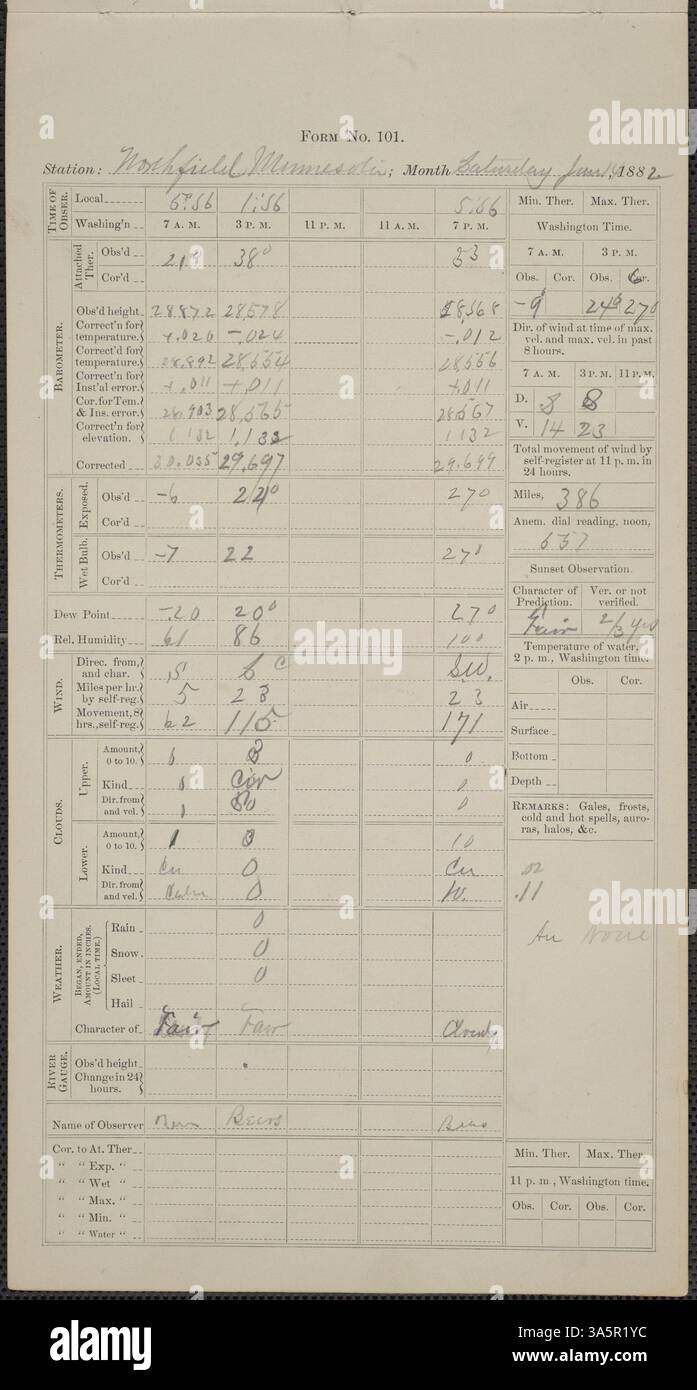 Form No. 101.
Station: Northfield Minnesota; Month Saturday Jan 14, 1882
TIME OF OBSER.
Local 6:56 1:56 5:56
Washing'n 7 A. M. 3 P. M. 11 P. M. 11 A. M. 7 P. M.
BAROMETER.
Attached Ther.
Obs'd 21° 38° 53
Cor'd
Obs'd height 28.872 28,578 28,568
Correct'n for temperature. +.020 -.024 -.012
Correct'd for temperature. 28.892 28,554 28,556
Correct'n for Inst'al error. +.011 +.011 +.011
Cor. for Tem. & Ins. error. 28.903 28,565 28,567
Correct'n for elevation. 1132 1.132 1132
Corrected 30.035 29.697 29.699
THERMOMETERS.
Exposed.
Obs'd -6 22° 27°
Cor'd
Wet Bulb.
Obs'd -7 22 27°
Cor'd
Dew Point -20 20° 27°
Rel. Humidity 61 86 100
WIND.
Direc. from, and char. S S.W.
Miles per hr. by self-reg. 5 23 23
Movement, 8 hrs., self-reg. 62 115 171
CLOUDS.
Upper.
Amount, 0 to 10. 0
Kind Cir 0
Dir. from and vel. 0
Lower.
Amount, 0 to 10. 1 0 10
Kind Cu 0 Cu
Dir. from and vel. Calm 0 W.
WEATHER.
BEGAN, ENDED, AMOUNT IN INCHES. (LOCAL TIME.)
Rain 0
Snow 0
Sleet 0
Hail
Character of Fair Fair Cloudy
RIVER GAUGE.
Obs'd height
Change in 24 hours.
Name of Observer
Cor. to At. Ther
" " Exp. "
" " Wet "
" " Max. "
" " Min. "
" " Water "
Min. Ther. Max. Ther.
Washington Time.
7 A. M. 3 P. M.
Obs. Cor. Obs. Cor.
-9° 24° 27°
Dir. of wind at time of max. vel. and max. vel. in past 8 hours.
7 A. M. 3 P. M. 11 P. M.
D. S S
V. 14 23
Total movement of wind by self-register at 11 p. m. in 24 hours.
Miles, 386
Anem. dial reading, noon,
657
Sunset Observation.
Character of Prediction. Ver. or not verified.
Fair 2/3 yes
Temperature of water. 2 p. m., Washington time.
Obs. Cor.
Air
Surface
Bottom
Depth
REMARKS: Gales, frosts, cold and hot spells, auroras, halos, &c.
.02
.11
Au None
Min. Ther. Max. Ther.
11 p. m., Washington time.
Obs. Cor. Obs. Cor.
alamy
Image ID: 3A5R1YC
www.alamy.com